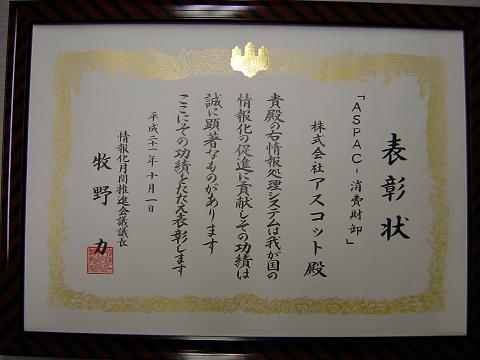 表彰状
「ASPAC-消費財卸」
株式会社アスコット殿
貴殿の右情報処理システムは我が国の
情報化の促進に貢献しその功績は
誠に顕著なものがあります
ここにその功績をたたえ表彰します
平成二十一年十月一日
情報化月間推進会議議長
牧野力